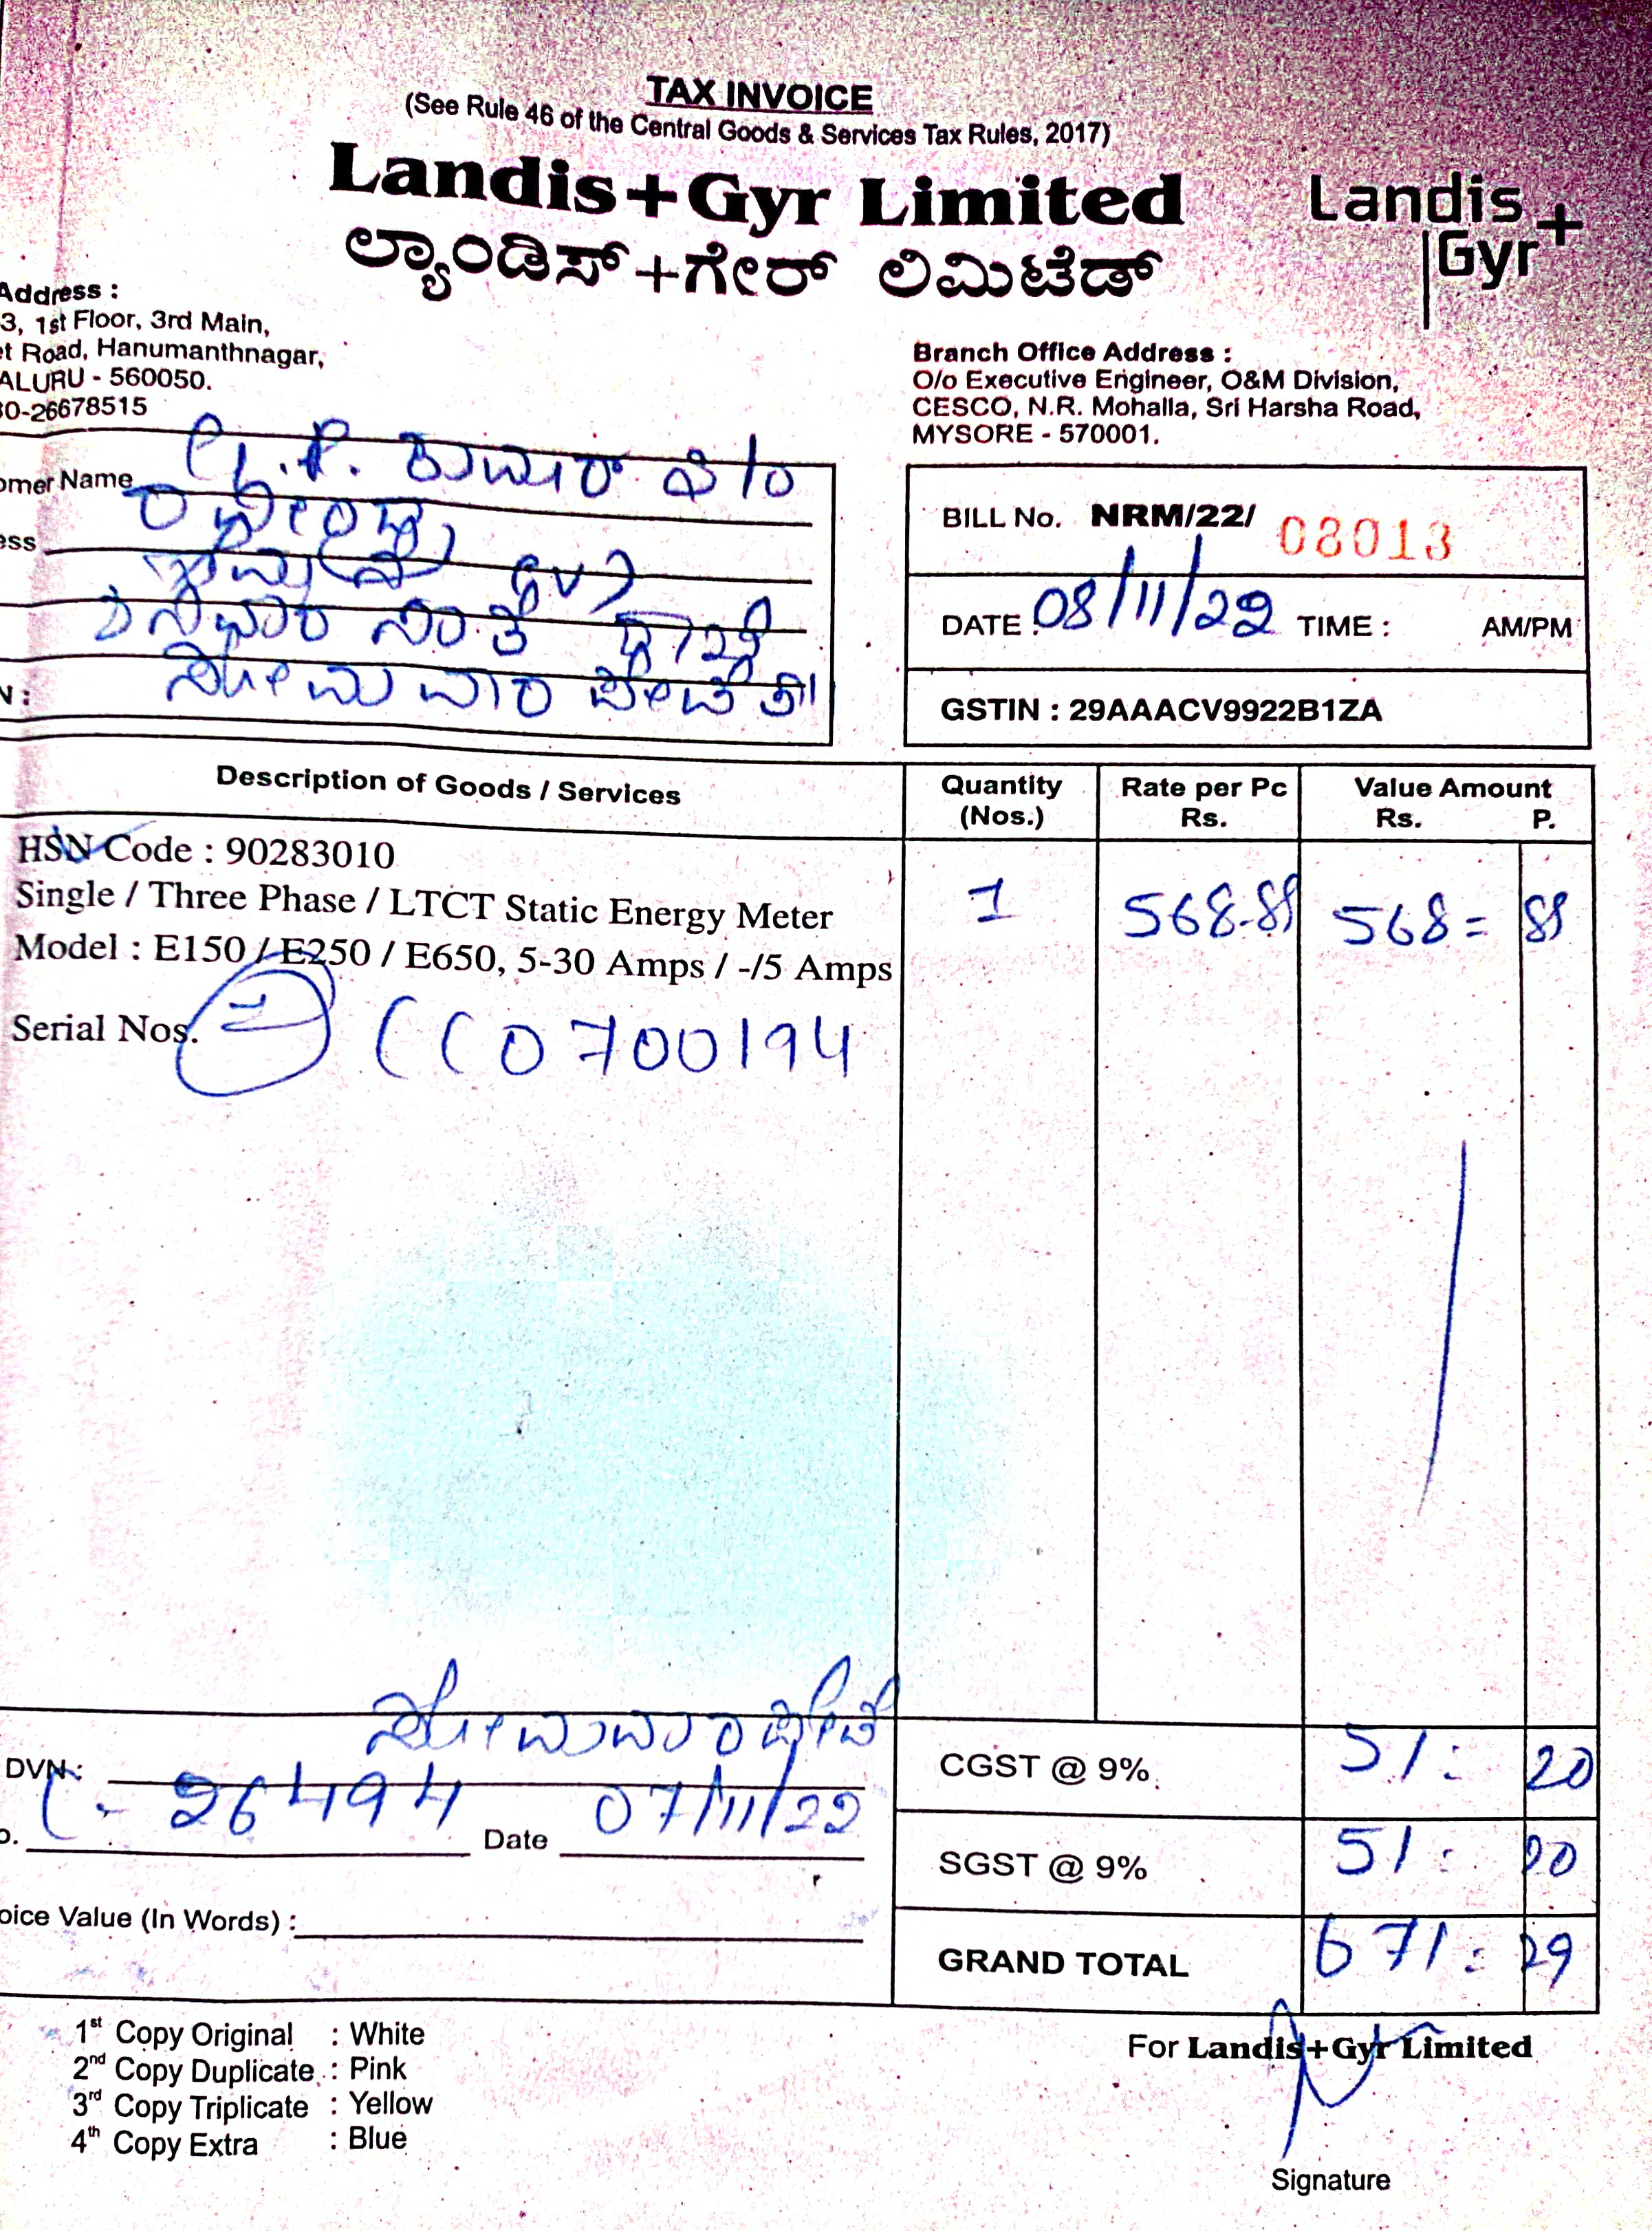 TAX INVOICE
(See Rule 46 of the Central Goods & Services Tax Rules, 2017)
Landis+Gyr Limited
ಲ್ಯಾಂಡಿಸ್+ಗೇರ್ ಲಿಮಿಟೆಡ್
Landis
Gyr+
Address :
3, 1st Floor, 3rd Main,
et Road, Hanumanthnagar,
ALURU - 560050.
30-26678515
Branch Office Address :
O/o Executive Engineer, O&M Division,
CESCO, N.R. Mohalla, Sri Harsha Road,
MYSORE - 570001.
omer Name ಕುಮಾರ್
ess
ಶನಿವಾರ ಸಂತೆ
N : ಸೋಮವಾರ ಪೇಟೆ ತಾ||
BILL No. NRM/22/ 08013
DATE : 08/11/22 TIME : AM/PM
GSTIN : 29AAACV9922B1ZA
Description of Goods / Services Quantity (Nos.) Rate per Pc Rs. Value Amount Rs. P.
HSN Code : 90283010
Single / Three Phase / LTCT Static Energy Meter 1 568.89 568= 89
Model : E150 / E250 / E650, 5-30 Amps / -/5 Amps
Serial Nos. CC0700194
ಸೋಮವಾರಪೇಟೆ
DVN :
o. 26494 Date 07/11/22
oice Value (In Words) :
CGST @ 9% 51: 20
SGST @ 9% 51: 20
GRAND TOTAL 671: 29
1st Copy Original : White
2nd Copy Duplicate : Pink
3rd Copy Triplicate : Yellow
4th Copy Extra : Blue
For Landis+Gyr Limited
Signature